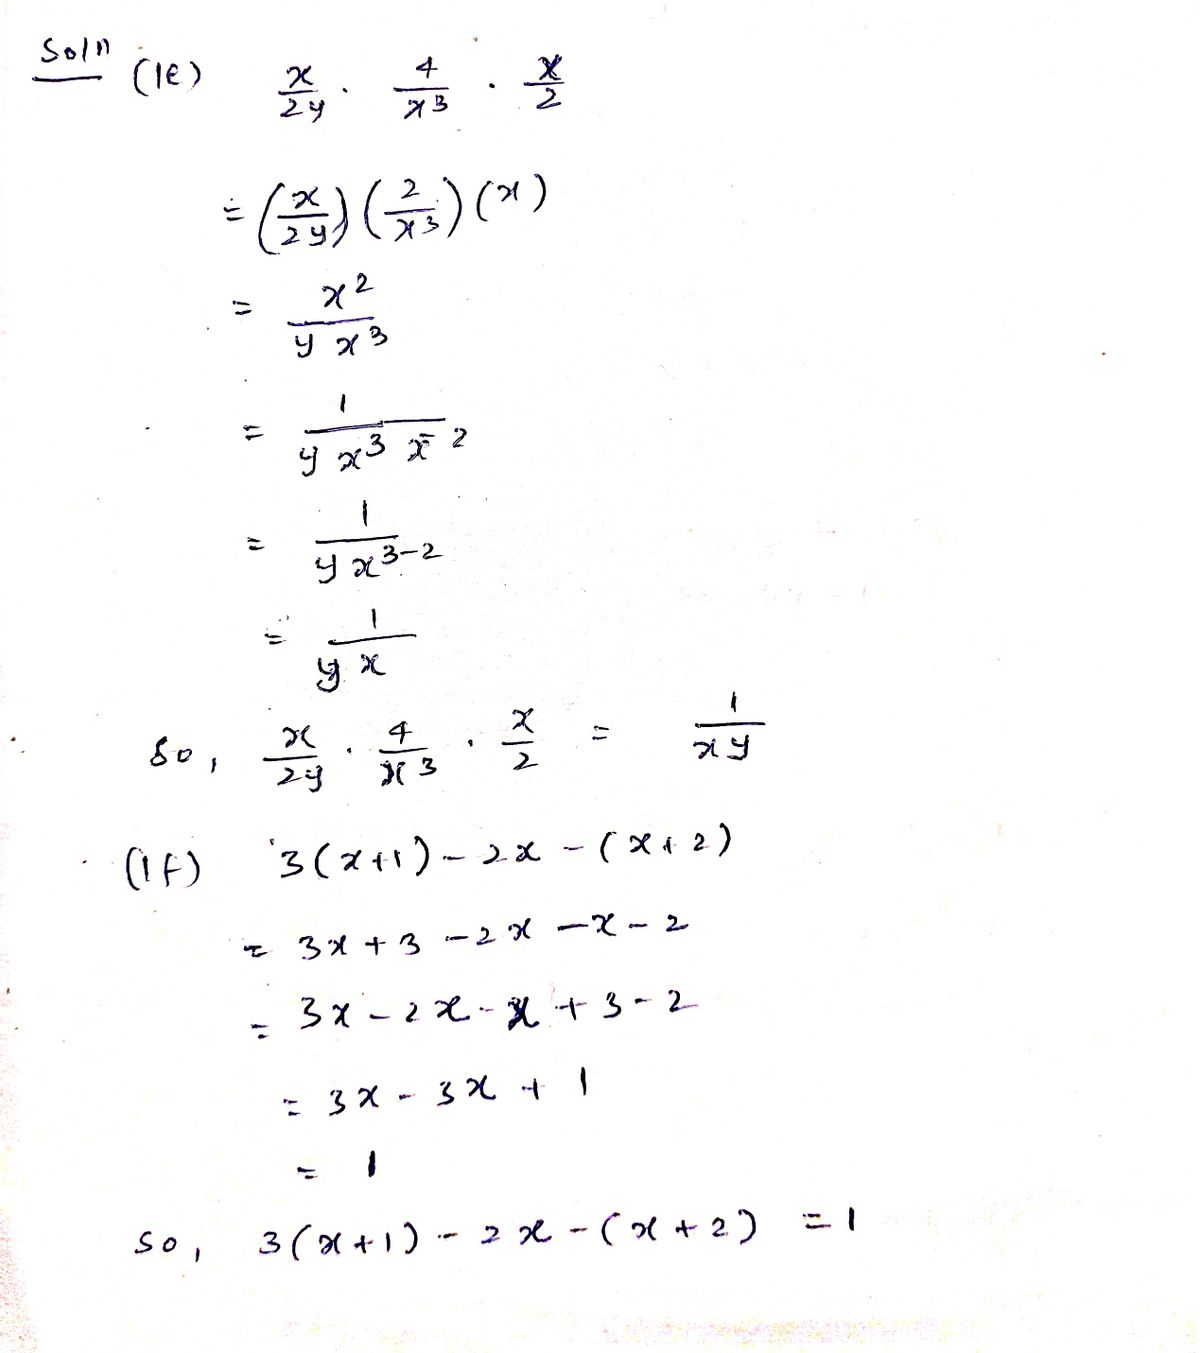 Soln (1e) x/2y · 4/x³ · x/2
= (x/2y) (2/x³) (x)
= x²/y x³
= 1/y x³ x⁻²
= 1/y x³⁻²
= 1/y x
So, x/2y · 4/x³ · x/2 = 1/xy
(1f) 3(x+1) - 2x - (x+2)
= 3x + 3 - 2x - x - 2
= 3x - 2x - x + 3 - 2
= 3x - 3x + 1
= 1
So, 3(x+1) - 2x - (x+2) = 1